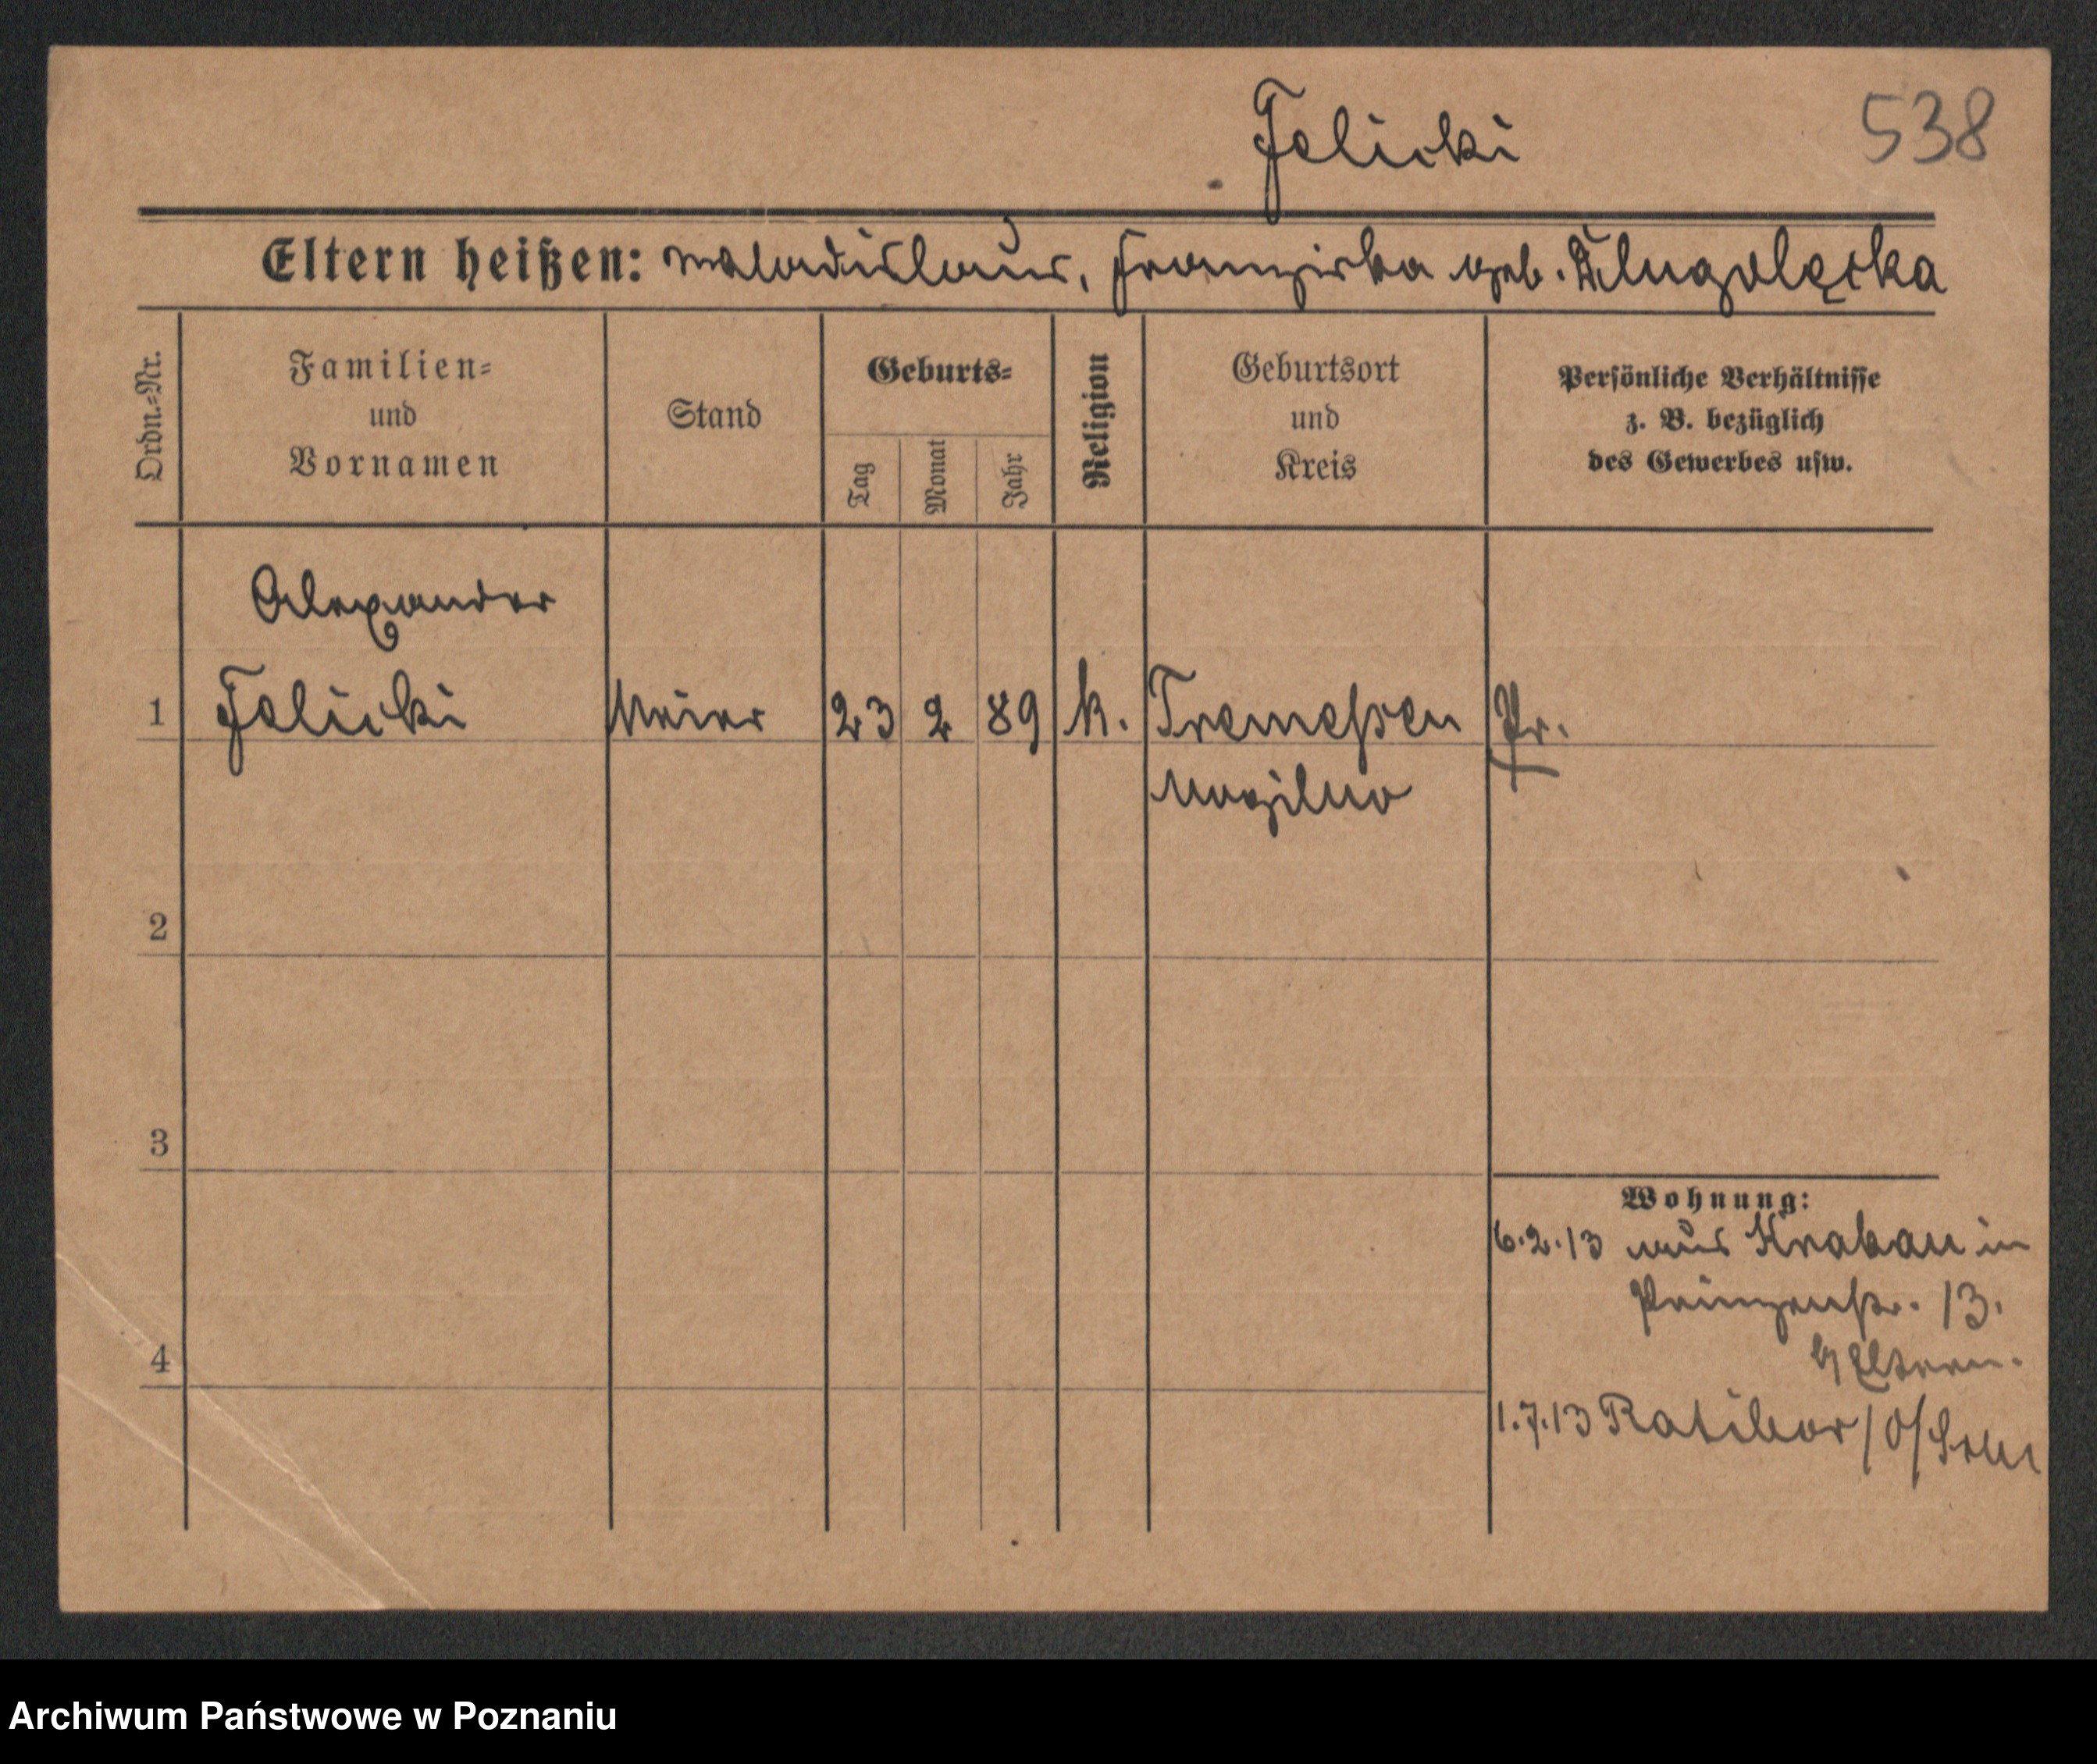 Jelicki
538
Eltern heißen: Wladislaus, Franziska geb. Dlugolęcka
Ordn.-Nr.
Familien-
und
Vornamen
Stand
Geburts-
Tag
Monat
Jahr
Religion
Geburtsort
und
Kreis
Persönliche Verhältnisse
z. B. bezüglich
des Gewerbes usw.
Alexander
1 Jelicki 23 2 89 k. Tremeßen Pr.
Mogilno
2
3
4
Wohnung:
6.2.13 aus Krakau in
Prinzenstr. 13.
b/ Eltern.
1.7.13 Ratibor/O/Schl
Archiwum Państwowe w Poznaniu